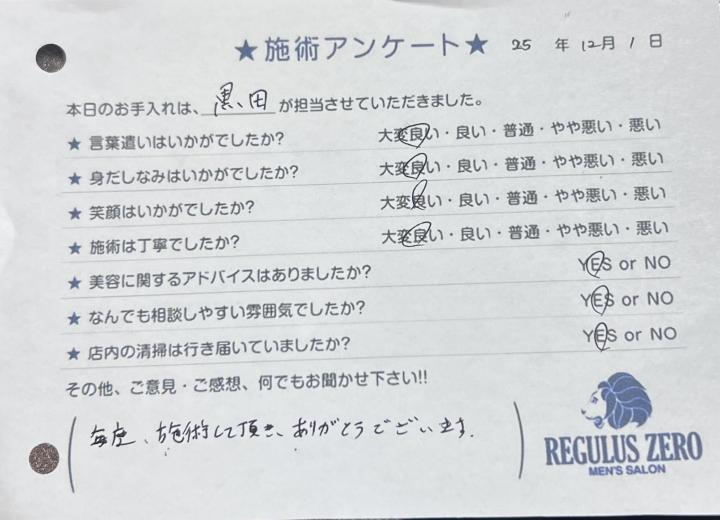 ★施術アンケート★ 25 年 12月 1 日
本日のお手入れは、黒田が担当させていただきました。
★ 言葉遣いはいかがでしたか? 大変良い・良い・普通・やや悪い・悪い
★ 身だしなみはいかがでしたか? 大変良い・良い・普通・やや悪い・悪い
★ 笑顔はいかがでしたか? 大変良い・良い・普通・やや悪い・悪い
★ 施術は丁寧でしたか? 大変良い・良い・普通・やや悪い・悪い
★ 美容に関するアドバイスはありましたか? YES or NO
★ なんでも相談しやすい雰囲気でしたか? YES or NO
★ 店内の清掃は行き届いていましたか? YES or NO
その他、ご意見・ご感想、何でもお聞かせ下さい!!
毎度、施術して頂き、ありがとうございます.
REGULUS ZERO
MEN'S SALON